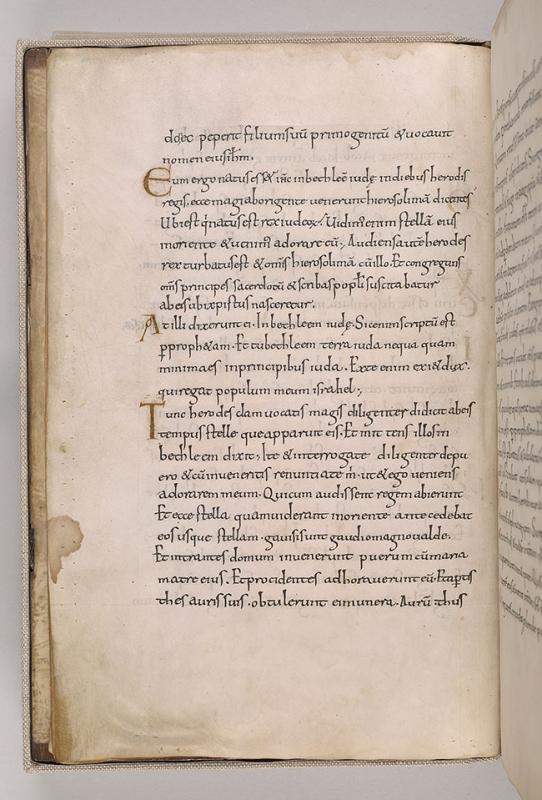 donec peperit filium suū primogenitū & uocauit
nomen eius ihm.
Cum ergo natus ess& ihc in bethleē iudę. in diebus herodis
regis. ecce magi ab origente uenerunt hierosolimā dicentes
Ubi est q natus est rex iudeoꝝ. Uidim enim stellā eius
in oriente & uenim adorare eū; Audiens autē herodes
rex turbatus est & omis hierosolimā cū illo. Et congregans
oms principes sacerdotū & scribas popli suscitabatur
ab eis ubi xpistus nasceretur.
At illi dixerunt ei. In bethleem iudę. Sic enim scriptū est
p proph&am. Et tu bethleem terra iuda nequaquam
minima es in principibus iuda. Ex te enim exi& dux.
qui regat populum meum israhel;
Tunc herodes clam uocatis magis diligenter didicit ab eis
tempus stelle que apparuit eis. Et mittens illos in
bethleem dixit; Ite & interrogate diligenter de pu
ero & cū inueneritis renuntiate m. ut & ego ueniens
adorarem eum. Qui cum audissent regem abierunt
Et ecce stella quam uiderant in oriente antecedebat
eos usque stellam. gauisi sunt gaudio magno ualde.
Et intrantes domum inuenerunt puerum cū maria
matre eius. Et procidentes adhorauerunt eū. Et aptis
thesauris suis. obtulerunt ei munera. Aurū. thus